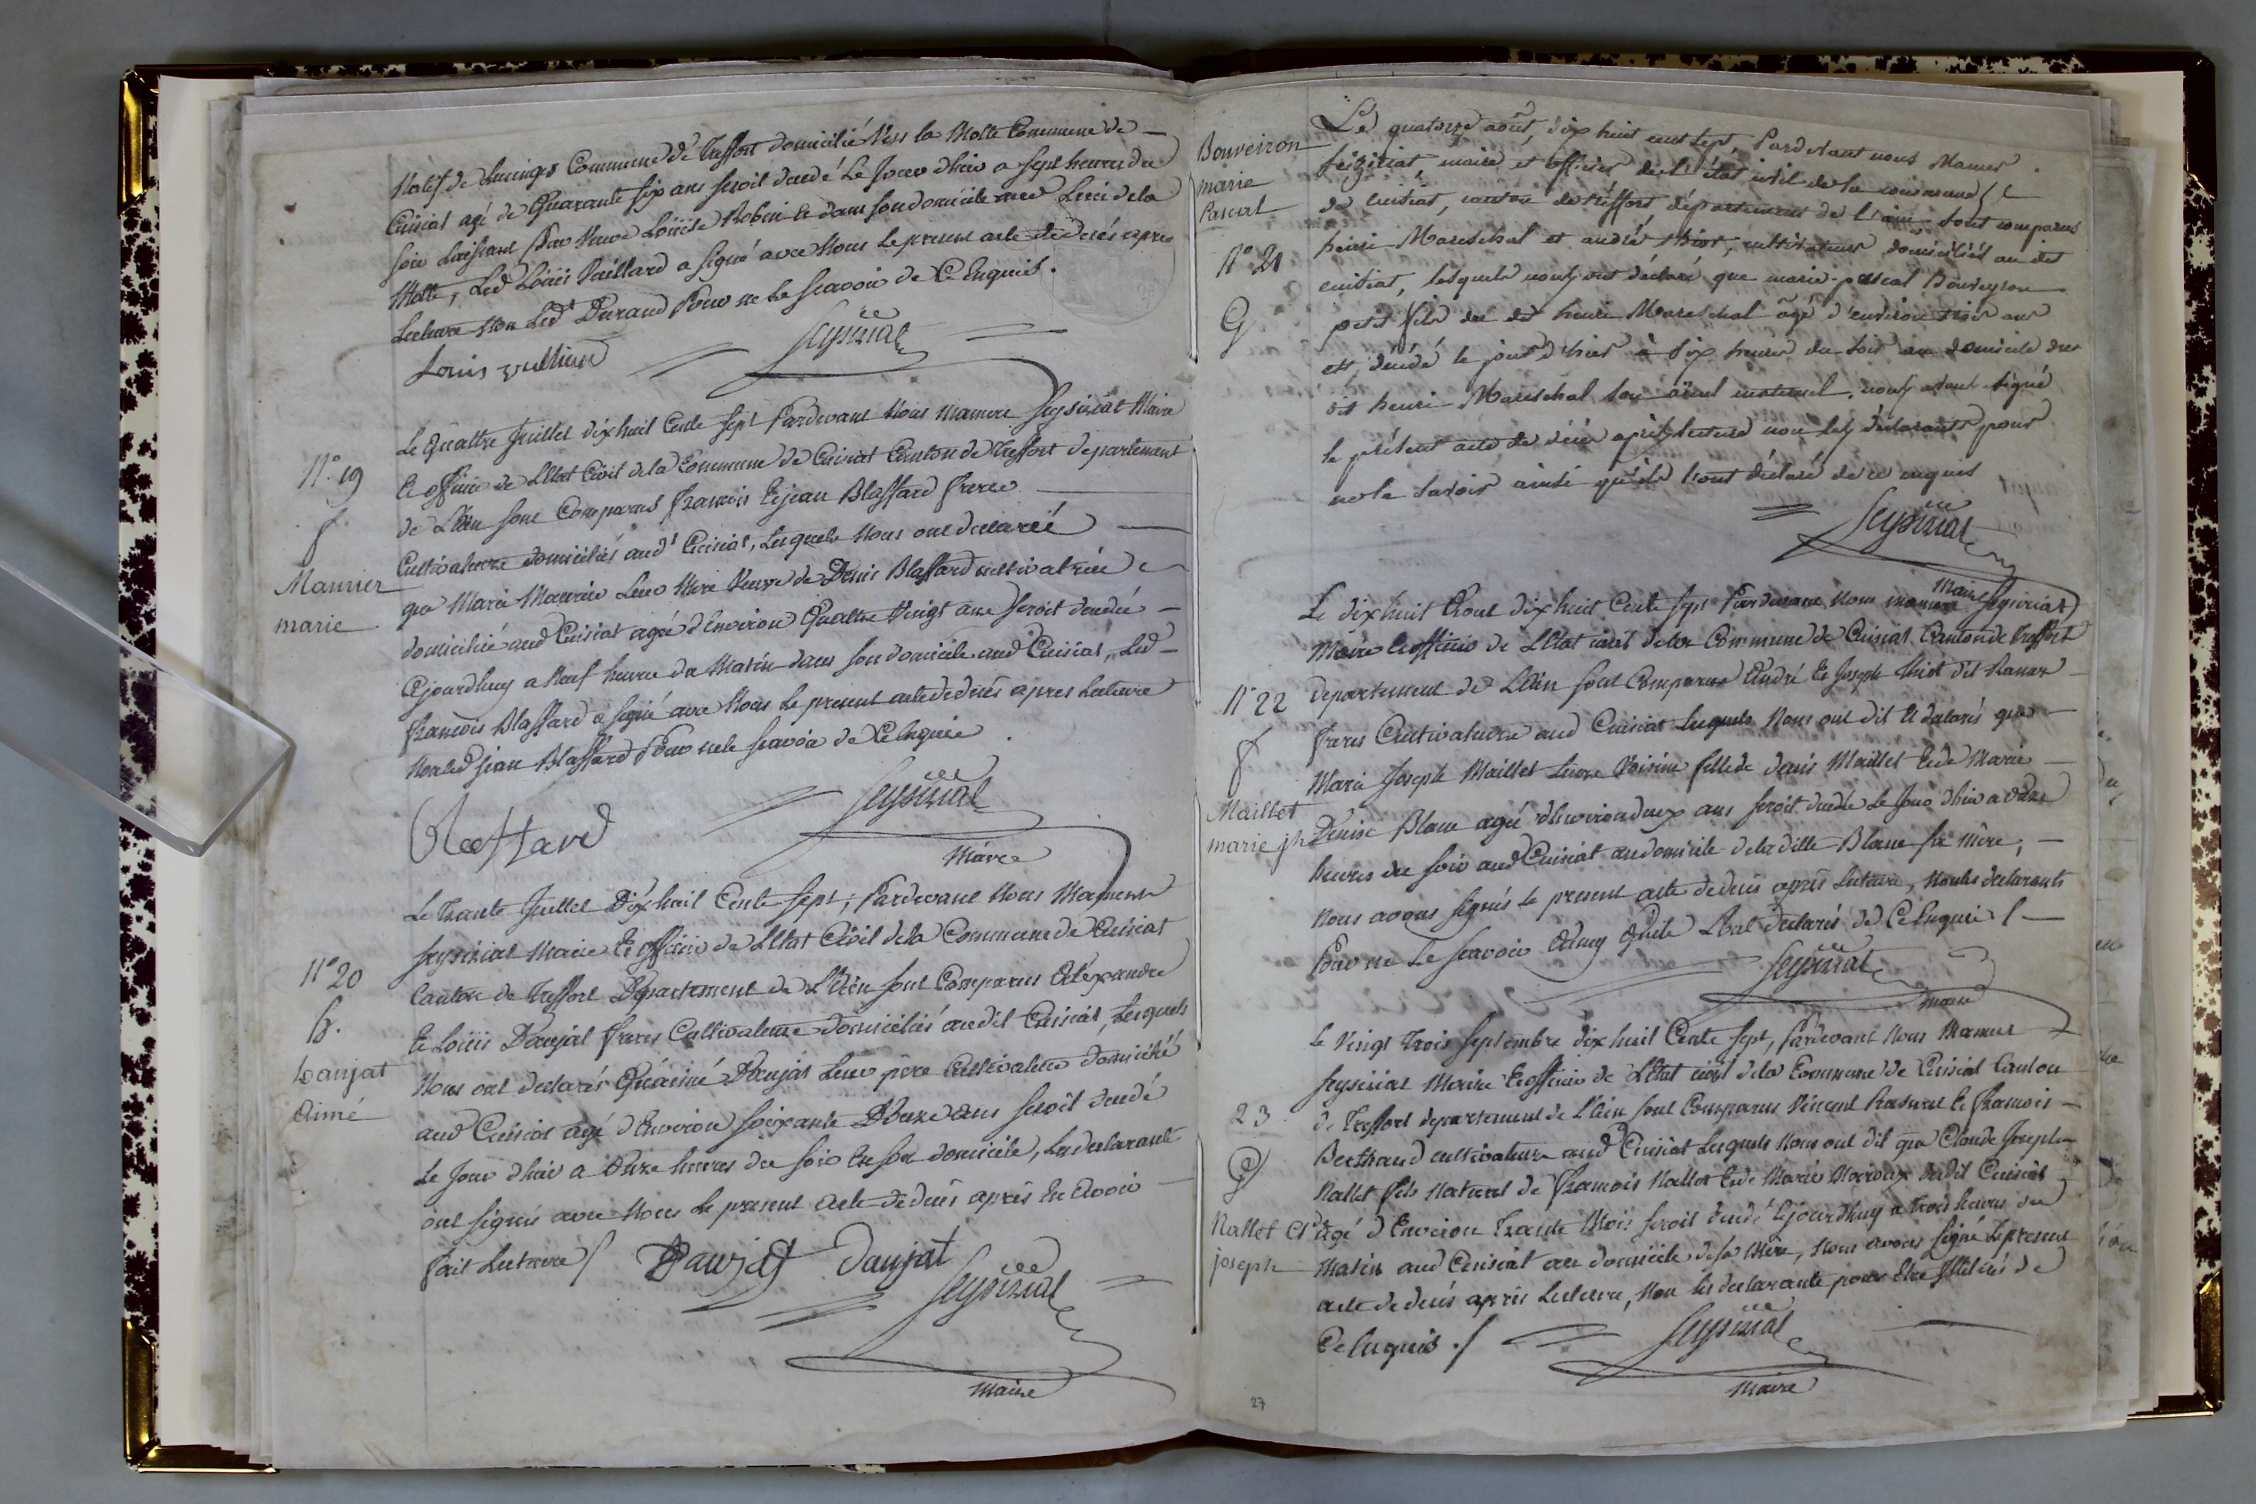 Natif de Lucinges Commune de Treffort domicilié Vers la Motte Commune de
Cuisiat agé de Quarante six ans seroit decedé Le Jour d'hier a sept heures du
soir Laissant pour Veuve Louise Robin et dans son domicile rue de la
Motte, Led. Louis Vuillard a signé avec Nous le present acte de decés apres
Lecture Non Led. Durand Pour ne le scavoir de Ce Enquis.
Louis vullien
Seysiriat
N°. 19
f
Maurier
marie
Le Quattre Juillet dix huit Cents sept Pardevant Nous Mamere Seysiriat Maire
Et officier de L'Etat Civil de la Commune de Cuisiat Canton de Treffort departement
de L'Ain sont Comparus François Et jean Blaffard freres
Cultivateurs domiciliés aud. Cuisiat, Lesquels Nous ont declaré
que Marie Maurier Leur Mere Veuve de Denis Blaffard cultivatrice
domiciliée aud Cuisiat agée d'Environ Quattre Vingt ans seroit decedée
Cejourdhuy a Neuf heures du Matin dans son domicile aud Cuisiat, Led
françois Blaffard a signé avec Nous le present acte de decés apres Lecture
Non led jean Blaffard Pour ne le scavoir de Ce Enquis
Blaffard
Seysiriat
Maire
N° 20
h.
Daujat
Aimé
Le Trante Juillet Dix huit Cents sept; Pardevant Nous Mamere
Seysiriat Maire Et officier de L'Etat Civil de la Commune de Cuisiat
Canton de Treffort Departement de L'Ain sont Comparus Alexandre
Et Louis Daujat freres Cultivateurs domiciliés audit Cuisiat, Lesquels
Nous ont declarés Qu'aimé Daujat Leur pere Cultivateur domicilié
aud Cuisiat agé d'Environ soixante Douze ans seroit decedé
Le Jour d'hier a Onze heures du soir En son domicile, Les declarants
ont signés avec Nous Le present acte de decés après En avoir
fait Lecture /
Daujat Daujat
Seysiriat
Maire
Bouveiron
marie
Pascal
N° 21
G
Le quatorze août, dix huit cent sept, Pardevant nous Mamer
seiziriat, maire et officier de l'état civil de la commune
de cuisiat, canton de treffort, département de l'ain sont comparus
henri Mareschal et andré thiot, cultivateurs domiciliés au dit
cuisiat, lesquels nous ont déclaré que marie-pascal Bouveyron
petit fils du dit henri Mareschal âgé d'environ trois ans
est décédé le jour d'hier à six heures du soir au domicile du
dit henri Mareschal son aïeul maternel. nous avons signé
le présent acte de décès après lecture non les déclarants pour
ne le savoir ainsi qu'ils l'ont déclaré de ce enquis
Seysiriat
Maire
Le dix huit Aout dix huit Cents sept Pardevant Nous Mamere Seysiriat
Maire Et officier de L'Etat civil de la Commune de Cuisiat Canton de Treffort
N° 22
f
Maillet
marie jh
departement de L'Ain sont Comparus André Et Joseph thiot dit
freres Cultivateurs aud Cuisiat Lesquels Nous ont dit Et declarés que
Marie Joseph Maillet Leur Voisine fille de denis Maillet Et de Marie
Denise Blanc agée d'Environ deux ans seroit decedée Le Jour d'hier a onze
heures du soir aud Cuisiat au domicile de la ditte Blanc sa mère,
Nous avons signés le present acte de decés après Lecture, Non les declarants
Pour ne Le scavoir de Ce Enquis /
Seysiriat
Maire
23
G
Nallet Cl
joseph
Le Vingt Trois Septembre dix huit Cents sept, Pardevant Nous Mamert
Seysiriat Maire Et officier de L'Etat civil de la Commune de Cuisiat Canton
de Treffort departement de L'Ain sont Comparus Vincent Et François
Berthaud cultivateurs aud Cuisiat Lesquels Nous ont dit que Claude Joseph
Nallet fils Naturel de François Nallet Et de Marie dudit Cuisiat
agé d'Environ Trante Mois seroit decedé Cejourdhuy a trois heures du
Matin aud Cuisiat au domicile de sa Mère, Nous avons signé Le present
acte de decés après Lecture, Non les declarants pour Etre Illitérés de
Ce Enquis ./
Seysiriat
Maire
27